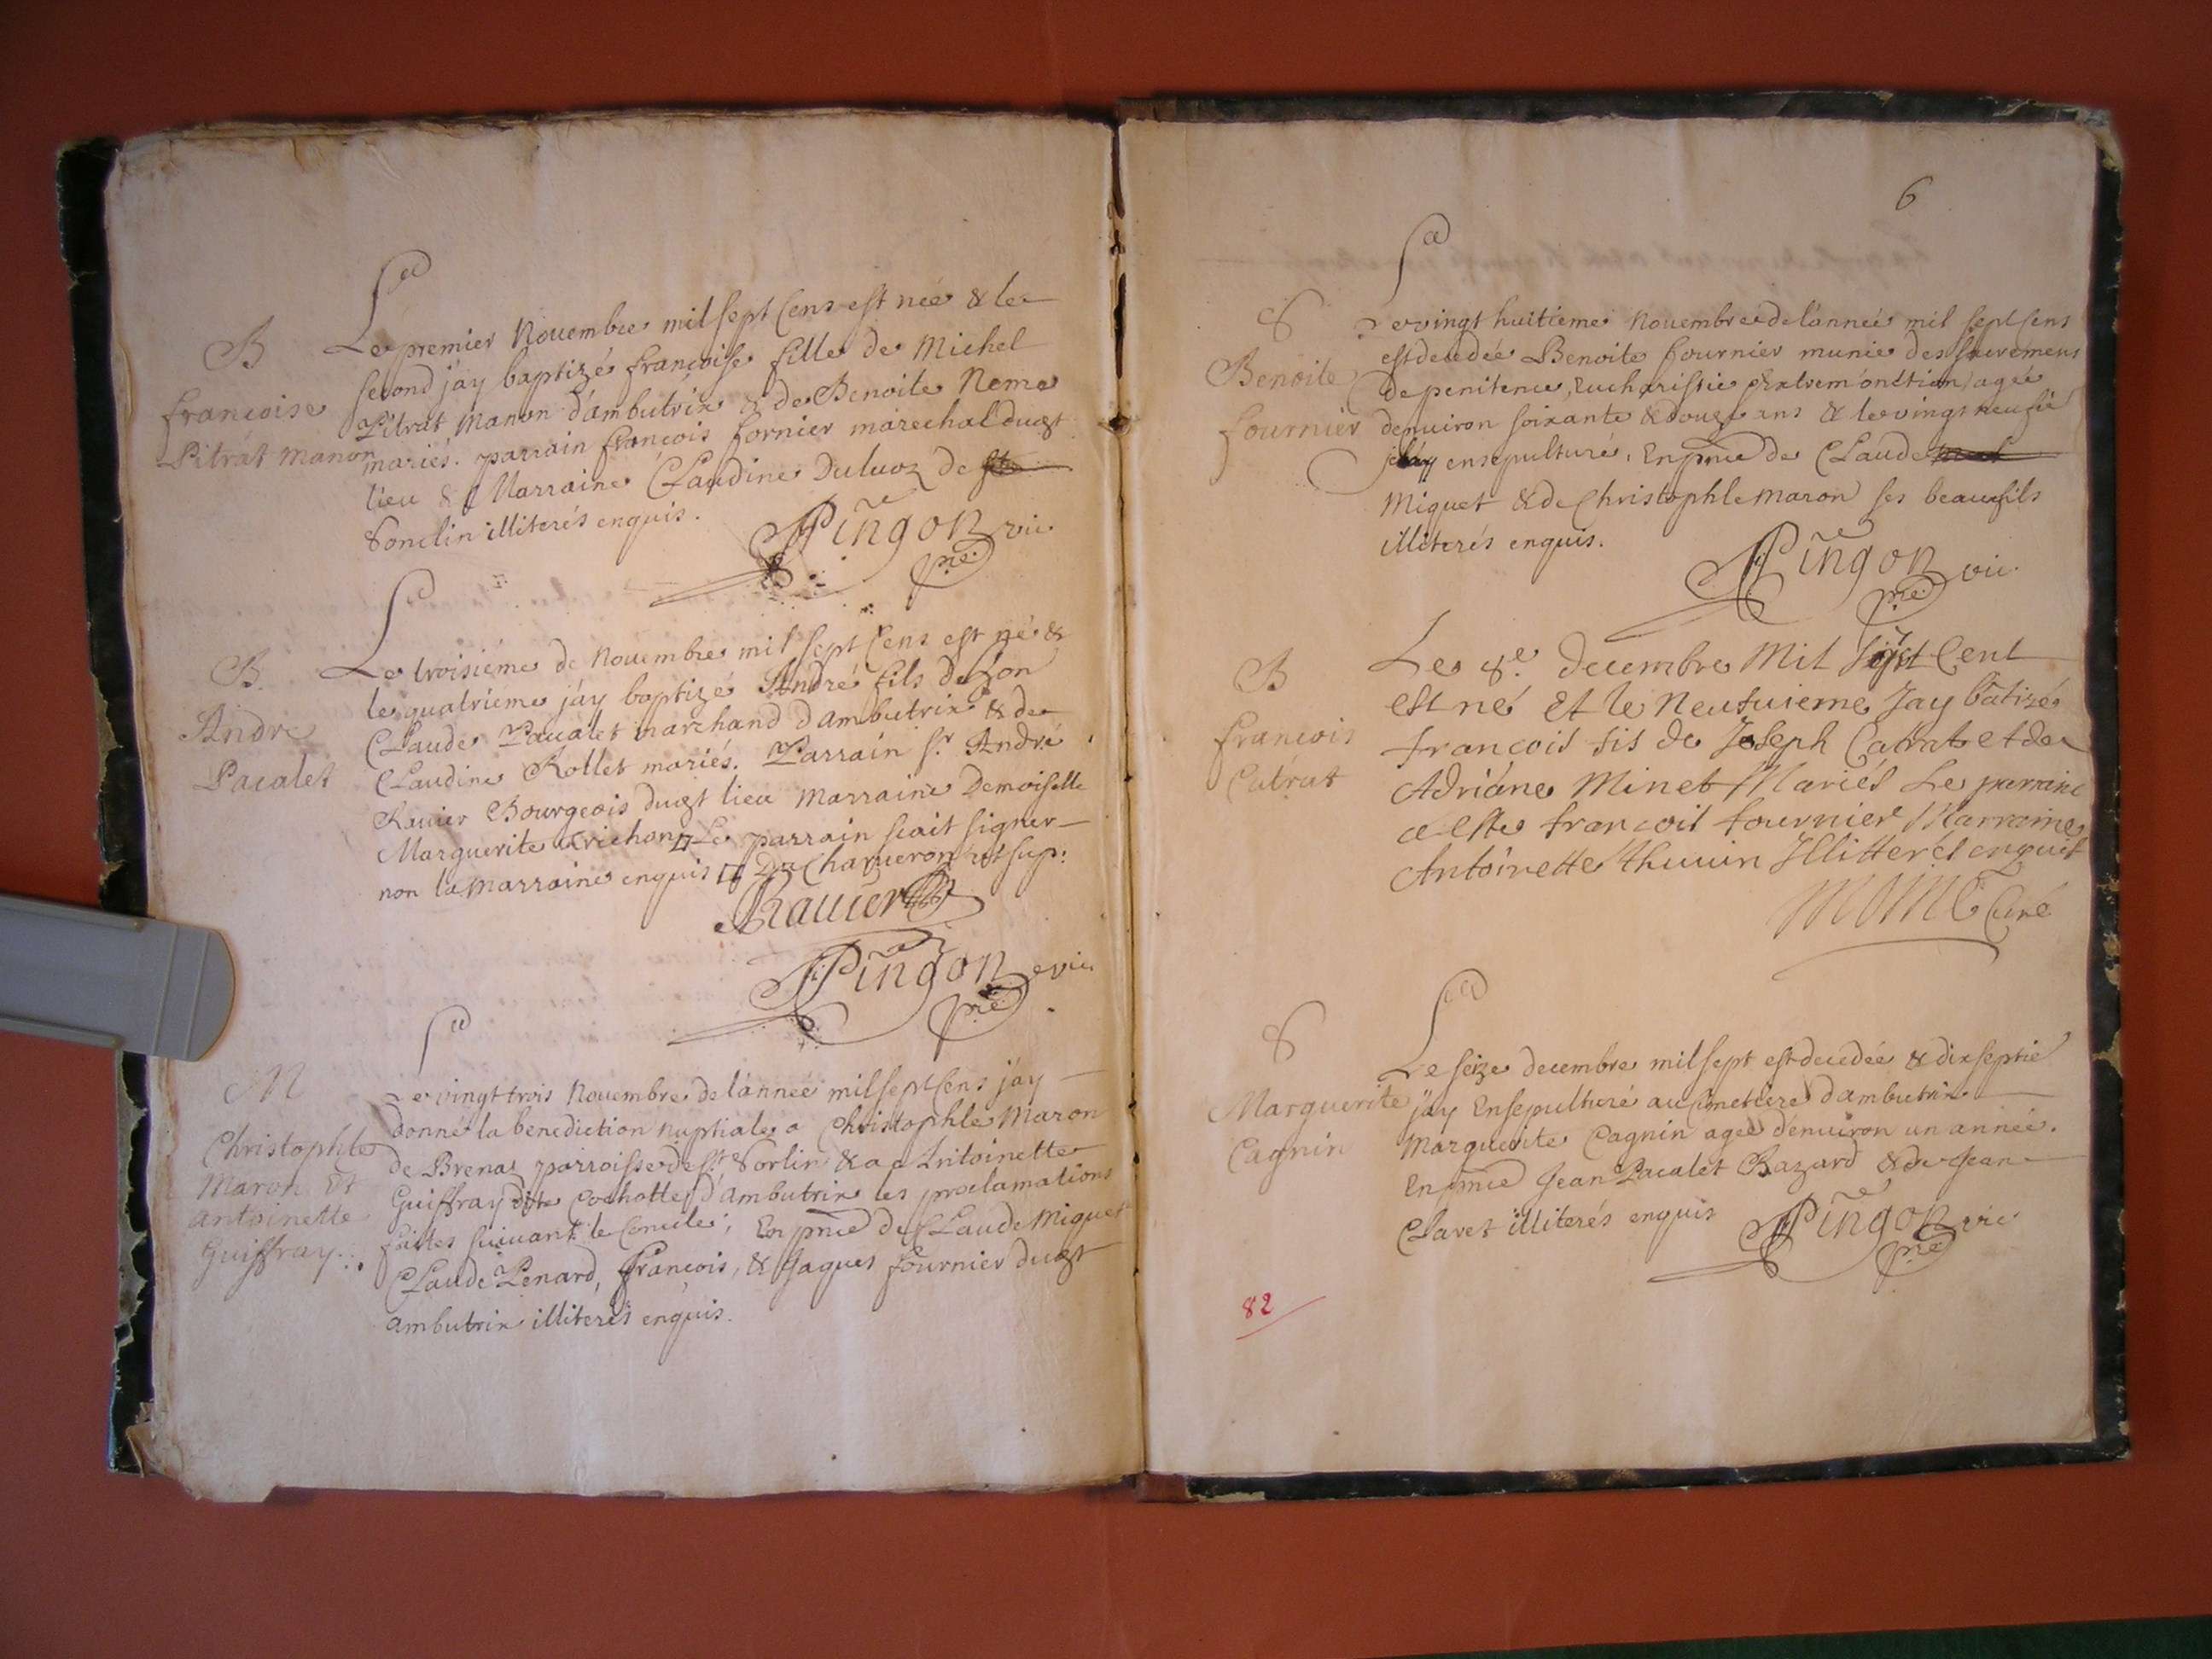 B
francoise
Pitrat manon
Le premier Nouembre mil sept Cens est née & le
second j'ay baptizé francoise fille de Michel
Pitrat Manon d'ambutrix & de Benoite Neme
mariés. parrain francois fornier maréchal dudt
lieu & Marraine Claudine Duluoz de
Sonclin illiterés enquis.
Pingon vic
B.
André
Pacalet
Le troisiéme de Nouembre mil sept Cens est né &
le quatriéme j'ay baptizé André fils de hon
Claude Pacalet marchand d'ambutrix & de
Claudine Rollet mariés. Parrain Sr. André
Rauier Bourgeois dudt lieu Marraine Demoiselle
Marguerite Trichon Le parrain scait signer
non la marraine enquis De Charueron ut sup:
Rauier
Pingon vic
M
Christophle
Maron et
antoinette
Guiffray
Le vingt trois Nouembre de l'année mil sept Cens j'ay
donné la benediction nuptiale a Christophle Maron
de Brenaz parroisse de St. Sorlin & a Antoinette
Guiffray dite Cochotte d'ambutrix les proclamations
faites suiuant le Concile; En pnce de Claude Miguet
Claude Penard, françois, & Jaques fournier dudt
ambutrix illiterés enquis.
6
S
Benoite
fournier
Le vingt huitieme Nouembre de l'année mil sept sens
est decedée Benoite fournier munie des sacremens
de penitence, Eucharistie & extrem'onction agée
denuiron soixante & douze ans & le vingt neufie
je l'ay ensepulturé. En pnce de Claude
Miguet & de Christophle maron ses beaux fils
illiterés enquis.
Pingon vic
B
francois
Catrat
Le 8e. decembre Mil Sept Cent
est né Et le Neufuieme Jay batizé
francois fis de Joseph Catrat et de
Adriane Minet Mariés Le parrain
a Este francois fournier Marraine
Antoinette thuuin Illitterés enquis
Curé
S
Marguerite
Cagnin
Le seize decembre mil sept est decedée & dixseptie
j'ay Ensepulturé au Cimettiere d'ambutrix
Marguerite Cagnin agée denuiron un année.
En pnce Jean Pacalet Bazard & de Jean
Claret illiterés enquis
Pingon vic
82